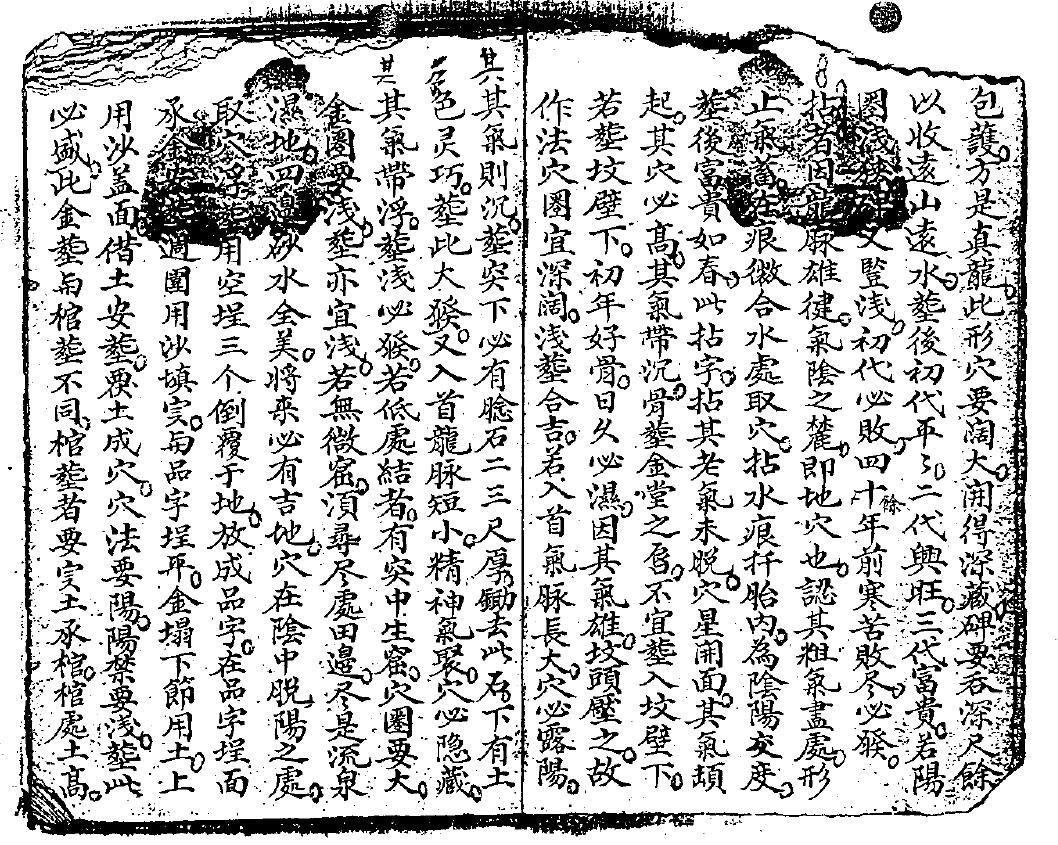 包護。方是真龍。此形穴要阔大。開得深藏。碑要吞深尺餘
以收遠山遠水。塟後初代平〻。二代興旺。三代富貴。若陽
圏淺塟碑又豎淺。初代必敗。四十餘年前寒苦。敗尽必發。
拈者因龍脉雄健。氣陰之麓。即地穴也。認其粗氣盡處。形
止氣蓄。在痕微合水處取穴。拈水痕扦胎内。為陰陽交度。
塟後富貴如春。此拈字。拈其老氣未脱。穴星開面。其氣頑
起。其穴必高。其氣帶沉。骨塟金堂之唇。不宜塟入坟壁下。
若塟坟壁下。初年好骨。日久必濕。因其氣雄。坟頭壓之。故
作法穴圏宜深阔。淺塟合吉。若入首氣脉長大。穴必露陽。
其其氣則沉。塟突下必有脸石二三尺厚。鋤去此石。下有土
色灵巧。塟此大發。又入首龍脉短小。精神氣聚。穴必隐藏。
其其氣帶浮。塟淺必發。若低處結者。有突中生窩。穴圏要大。
金圏要淺。塟亦宜淺。若無微窩。須尋尽處田邊。尽是流泉
濕地。四邊砂水全美。將來必有吉地。穴在陰中脱陽之處。
取穴浮 用空埕三个倒覆于地。放成品字。在品字埕面
承金 週圍用沙填实。与品字埕平。金塌下節用土。上
用沙盖面。借土安塟。要土成穴。穴法要陽。陽禁要淺塟。此
必盛。此金塟与棺塟不同。棺塟者要实土承棺。棺處土高。